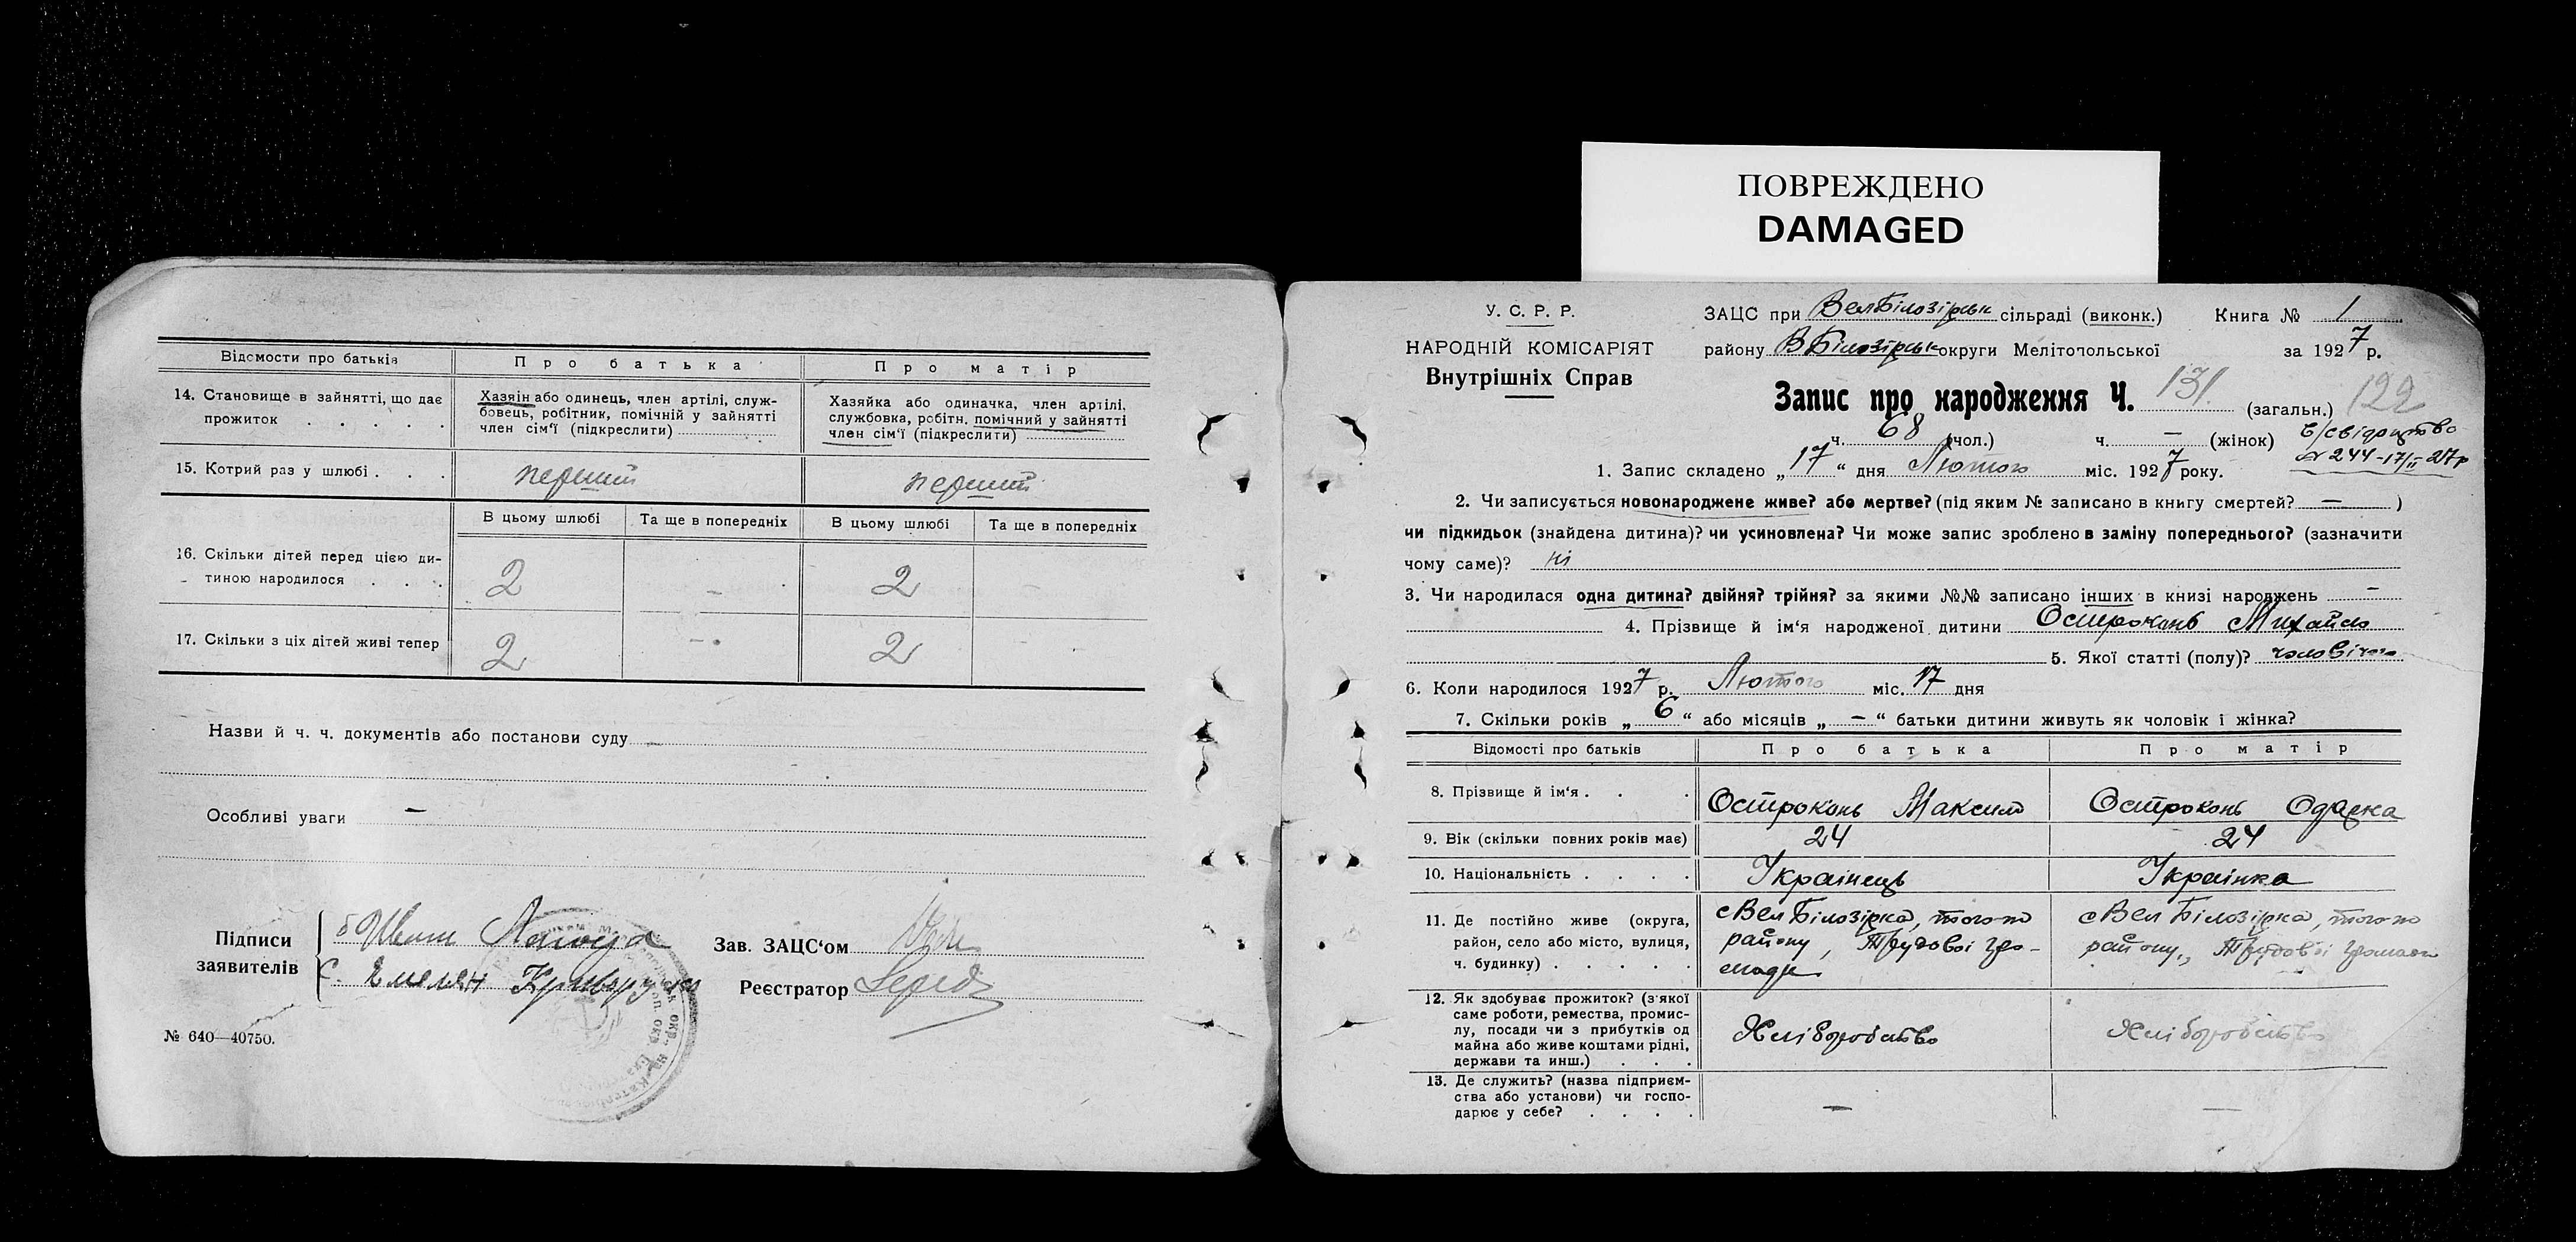 ПОВРЕЖДЕНО
DAMAGED
Відомости про батьків
Про батька
Про матір
14. Становище в зайнятті, що дає
прожиток . . . . .
Хазяін або одинець, член артілі, служ-
бовець, робітник, помічній у зайнятті
член сім'ї (підкреслити)
Хазяйка або одиначка, член артілі,
службовка, робітн. помічний у зайнятті
член сім'ї (підкреслити)
15. Котрий раз у шлюбі . . .
перший
перший
В цьому шлюбі
Та ще в попередніх
В цьому шлюбі
Та ще в попередніх
16. Скільки дітей перед цією ди-
тиною народилося . . .
2
–
2
–
17. Скільки з ціх дітей живі тепер
2
–
2
–
Назви й ч. ч. документів або постанови суду
Особливі уваги –
Підписи
заявителів
Іван
Емелян
Зав. ЗАЦС'ом
Реєстратор
№ 640—40750.
У. С. Р. Р.
НАРОДНІЙ КОМІСАРІЯТ
Внутрішніх Справ
ЗАЦС при ВелБілозірськ сільраді (виконк.) Книга № 1
району ВБілозірськ округи Мелітопольської за 1927 р.
Запис про народження Ч. 131 (загальн.) 122
ч. 68 (чол.) ч. – (жінок)
свідоцтво
№ 244-17/II-27р
1. Запис складено „17“ дня Лютого міс. 1927 року.
2. Чи записується новонароджене живе? або мертве? (під яким № записано в книгу смертей? – )
чи підкидьок (знайдена дитина)? чи усиновлена? Чи може запис зроблено в заміну попереднього? (зазначити
чому саме)? ні
3. Чи народилася одна дитина? двійня? трійня? за якими №№ записано інших в книзі народжень –
4. Прізвище й ім'я народженої дитини Остроконь Михайло
5. Якої статті (полу)? чоловічого
6. Коли народилося 1927 р. Лютого міс. 17 дня
7. Скільки років „6“ або місяців „–“ батьки дитини живуть як чоловік і жінка?
Відомості про батьків
Про батька
Про матір
8. Прізвище й ім'я . . .
Остроконь Максим
Остроконь Одарка
9. Вік (скільки повних років має)
24
24
10. Національність . . . .
Украінець
Украінка
11. Де постійно живе (округа,
район, село або місто, вулиця,
ч. будинку) . . . . .
с Вел Білозірка, того-ж
району, Трудовоі гро-
мади
с Вел Білозірка, того-ж
району, Трудовоі громади
12. Як здобуває прожиток? (з'якої
саме роботи, ремества, промис-
лу, посади чи з прибутків од
майна або живе коштами рідні,
держави та инш.) . . .
Хліборобство
Хліборобство
13. Де служить? (назва підприєм-
ства або установи) чи госпо-
дарює у себе? . . . .
–
–